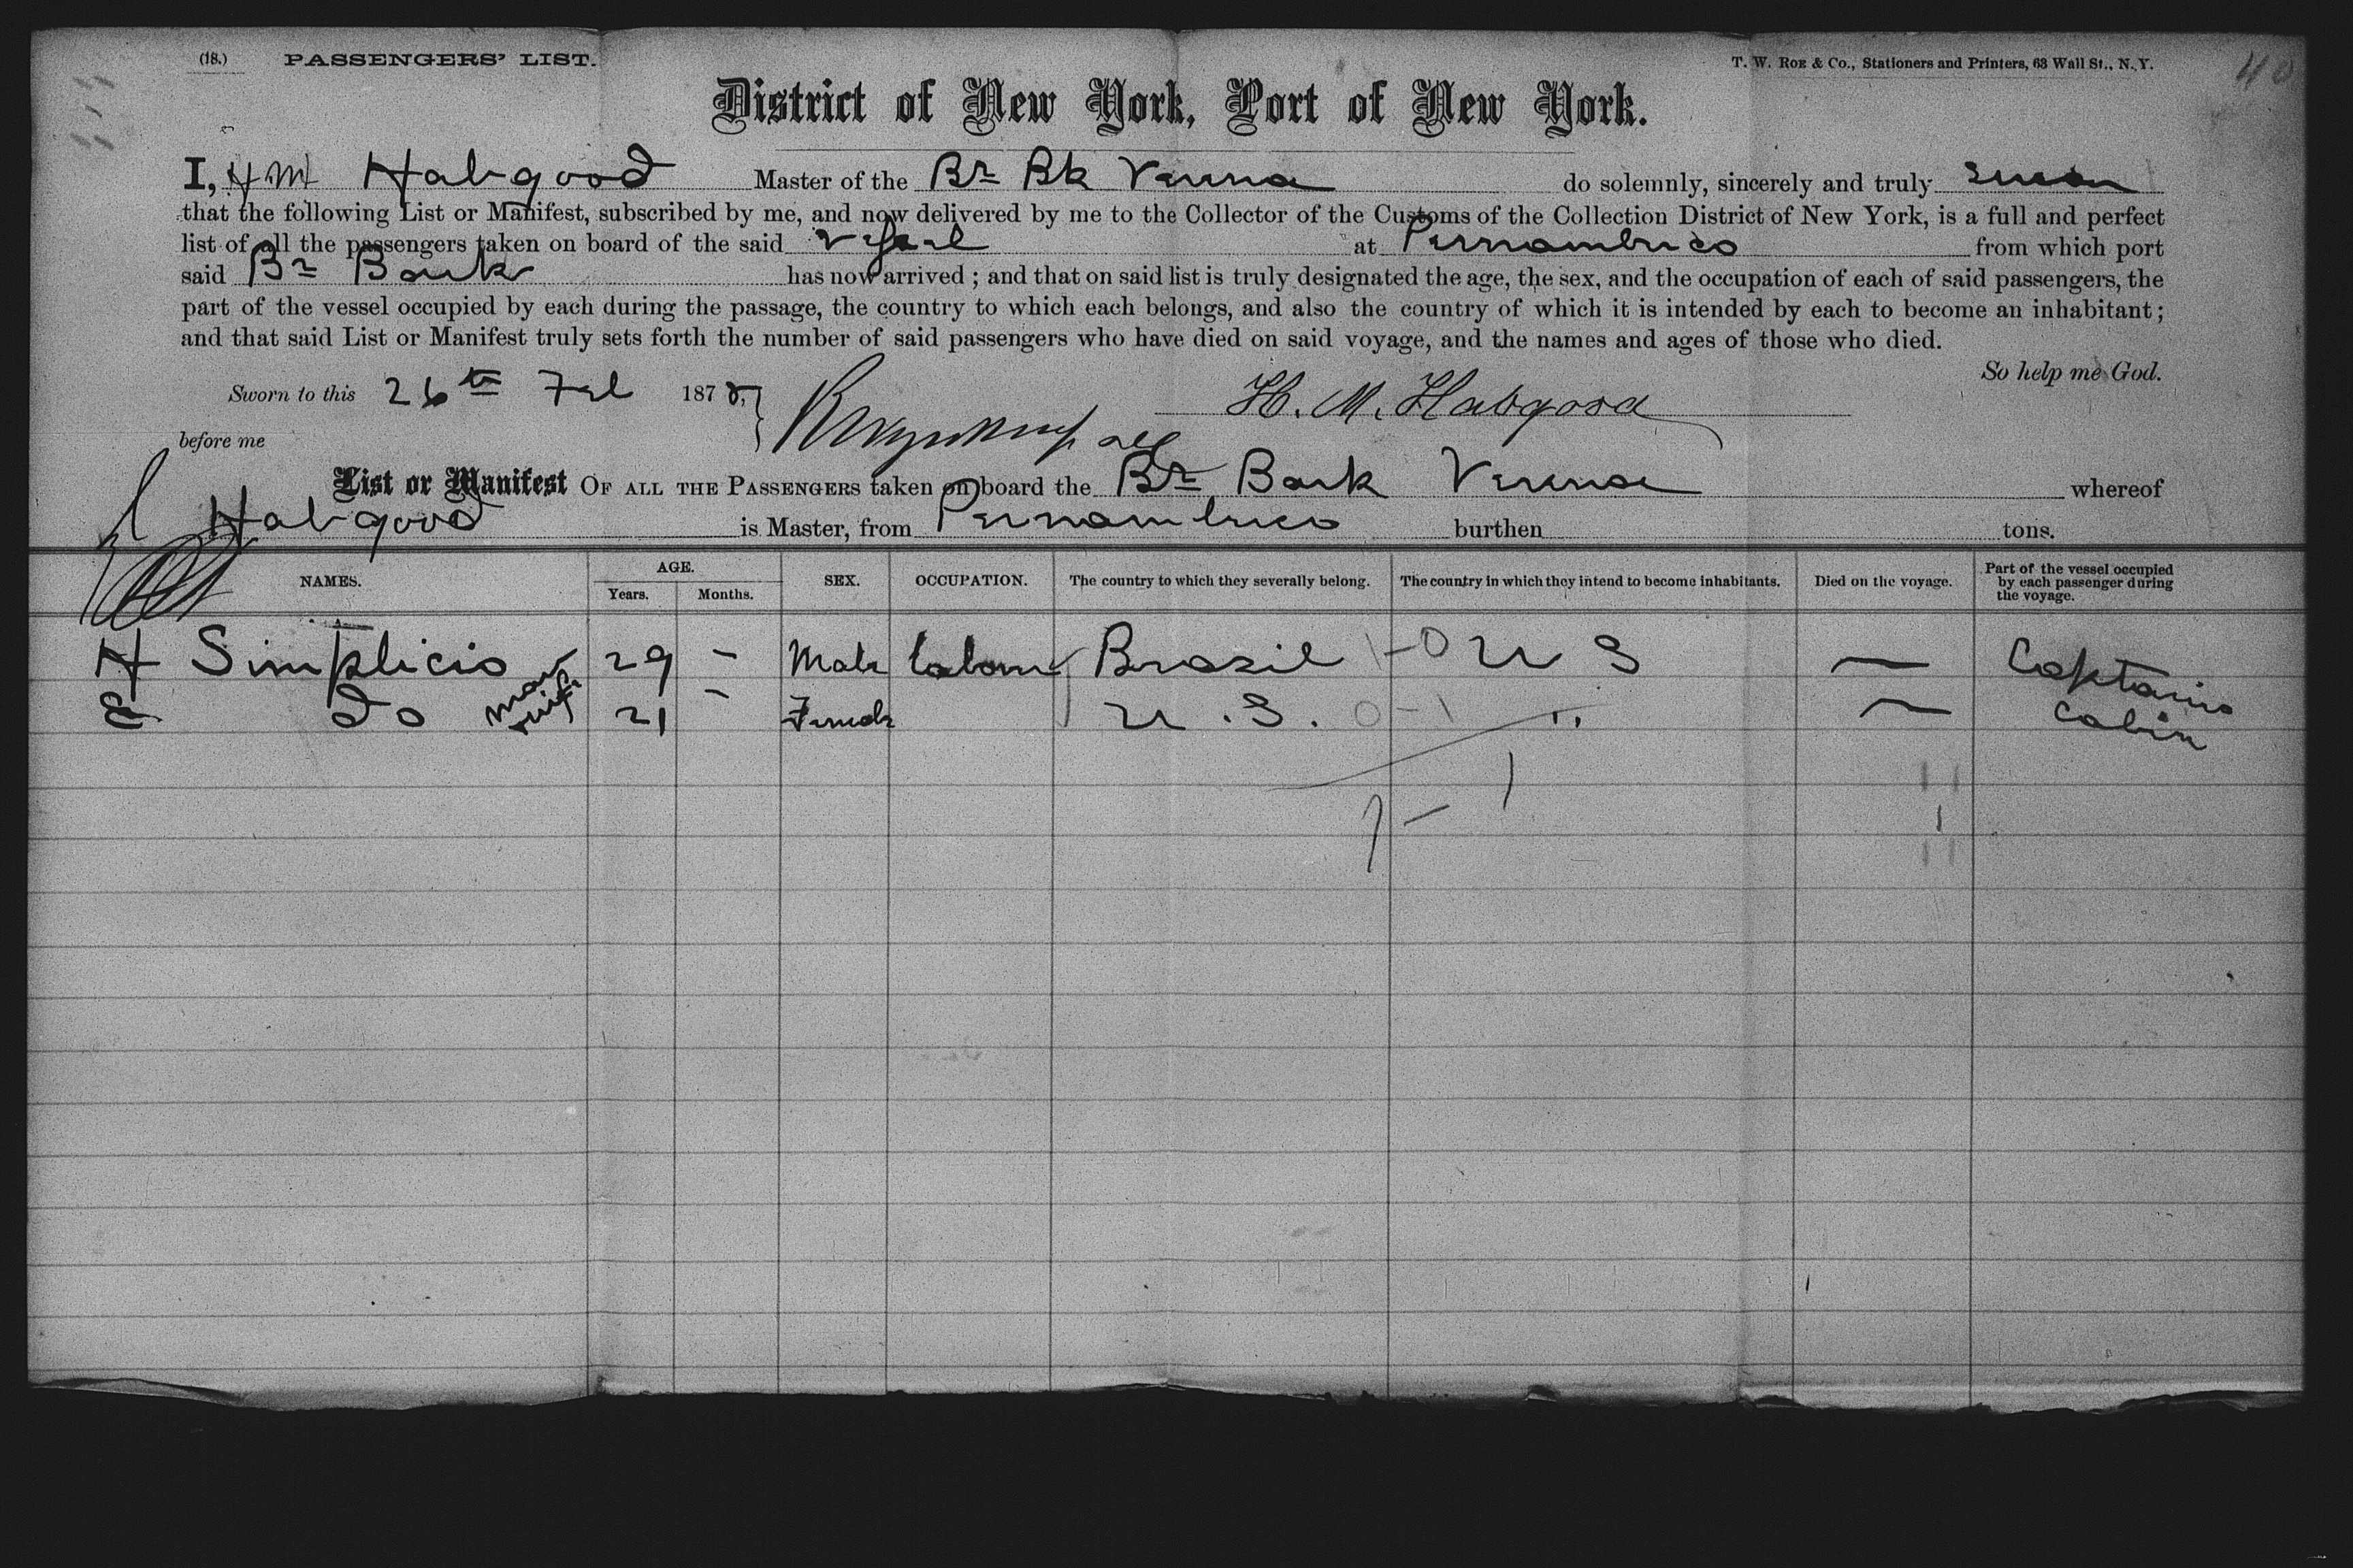 (18.) PASSENGERS' LIST. T. W. ROE & Co., Stationers and Printers, 63 Wall St., N.Y. 40
District of New York, Port of New York.
I, H M Habgood Master of the Br Bk Verena do solemnly, sincerely and truly swear
that the following List or Manifest, subscribed by me, and now delivered by me to the Collector of the Customs of the Collection District of New York, is a full and perfect
list of all the passengers taken on board of the said Vessel at Pernambuco from which port
said Br Bark has now arrived; and that on said list is truly designated the age, the sex, and the occupation of each of said passengers, the
part of the vessel occupied by each during the passage, the country to which each belongs, and also the country of which it is intended by each to become an inhabitant;
and that said List or Manifest truly sets forth the number of said passengers who have died on said voyage, and the names and ages of those who died.
So help me God.
Sworn to this 26th Feb 1878, H. M. Habgood
before me
List or Manifest OF ALL THE PASSENGERS taken on board the Br Bark Verena whereof
Habgood is Master, from Pernambuco burthen tons.
NAMES. AGE. Years. Months. SEX. OCCUPATION. The country to which they severally belong. The country in which they intend to become inhabitants. Died on the voyage. Part of the vessel occupied by each passenger during the voyage.
H Simplicio man 29 - Male labour Brasil 1-0 U S — Captains
E Do wife 21 - Female U.S. 0-1 " — Cabin
1 - 1